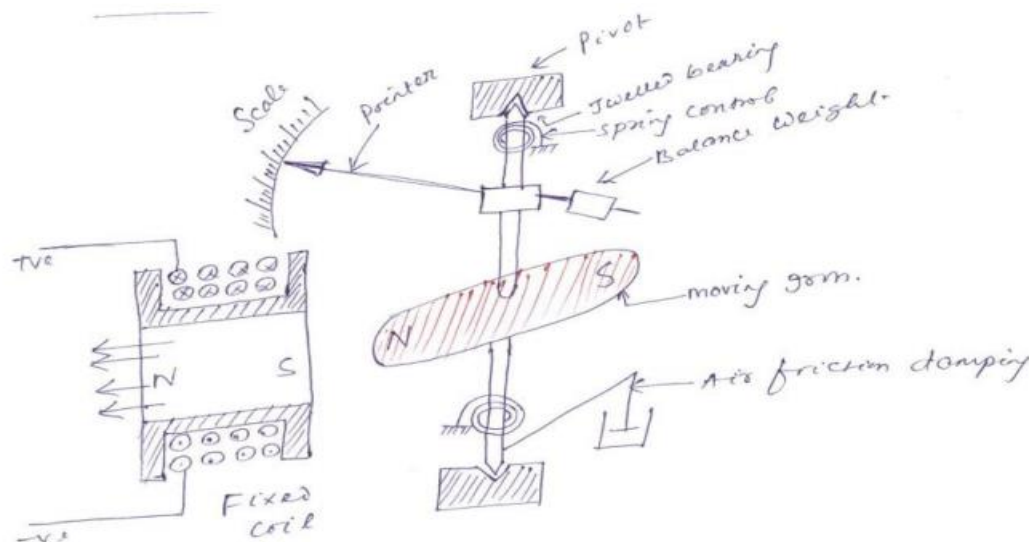 Pivot
Jwelled bearing
Spring control
Balance weight.
Scale
Pointer
+ve
N S
N
S
moving iron.
Air friction damping
Fixed
coil
-ve